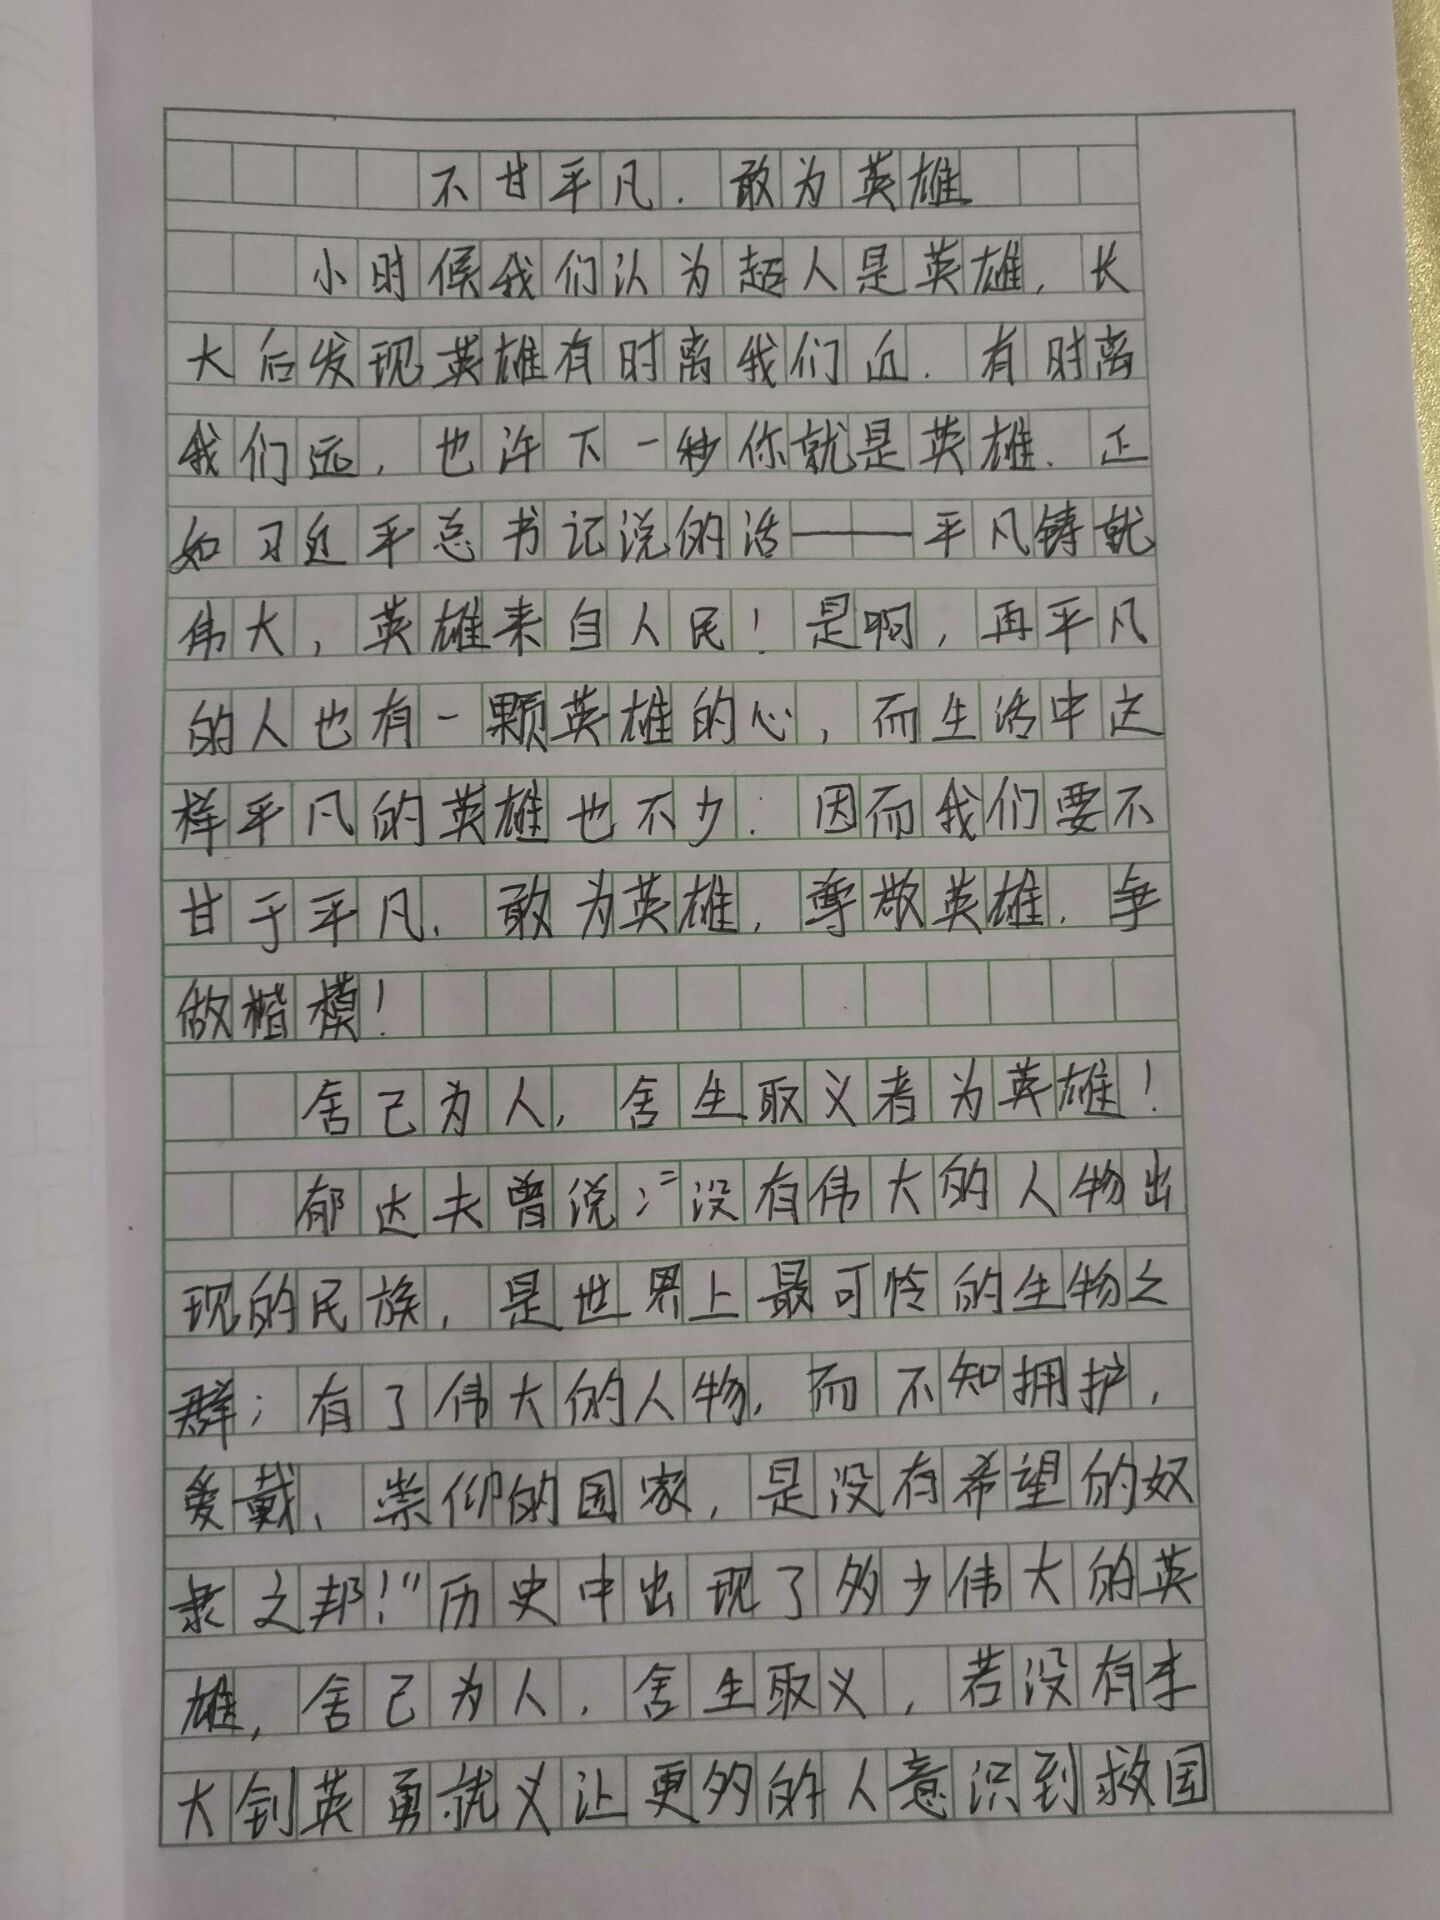 不甘平凡，敢为英雄
小时候我们认为超人是英雄，长
大后发现英雄有时离我们近，有时离
我们远，也许下一秒你就是英雄。正
如习近平总书记说的话——平凡铸就
伟大，英雄来自人民！是啊，再平凡
的人也有一颗英雄的心，而生活中这
样平凡的英雄也不少。因而我们要不
甘于平凡，敢为英雄，尊敬英雄，争
做楷模！
舍己为人，舍生取义者为英雄！
郁达夫曾说：“没有伟大的人物出
现的民族，是世界上最可怜的生物之
群；有了伟大的人物，而不知拥护，
爱戴、崇仰的国家，是没有希望的奴
隶之邦！”历史中出现了多少伟大的英
雄，舍己为人，舍生取义，若没有李
大钊英勇就义让更多的人意识到救国